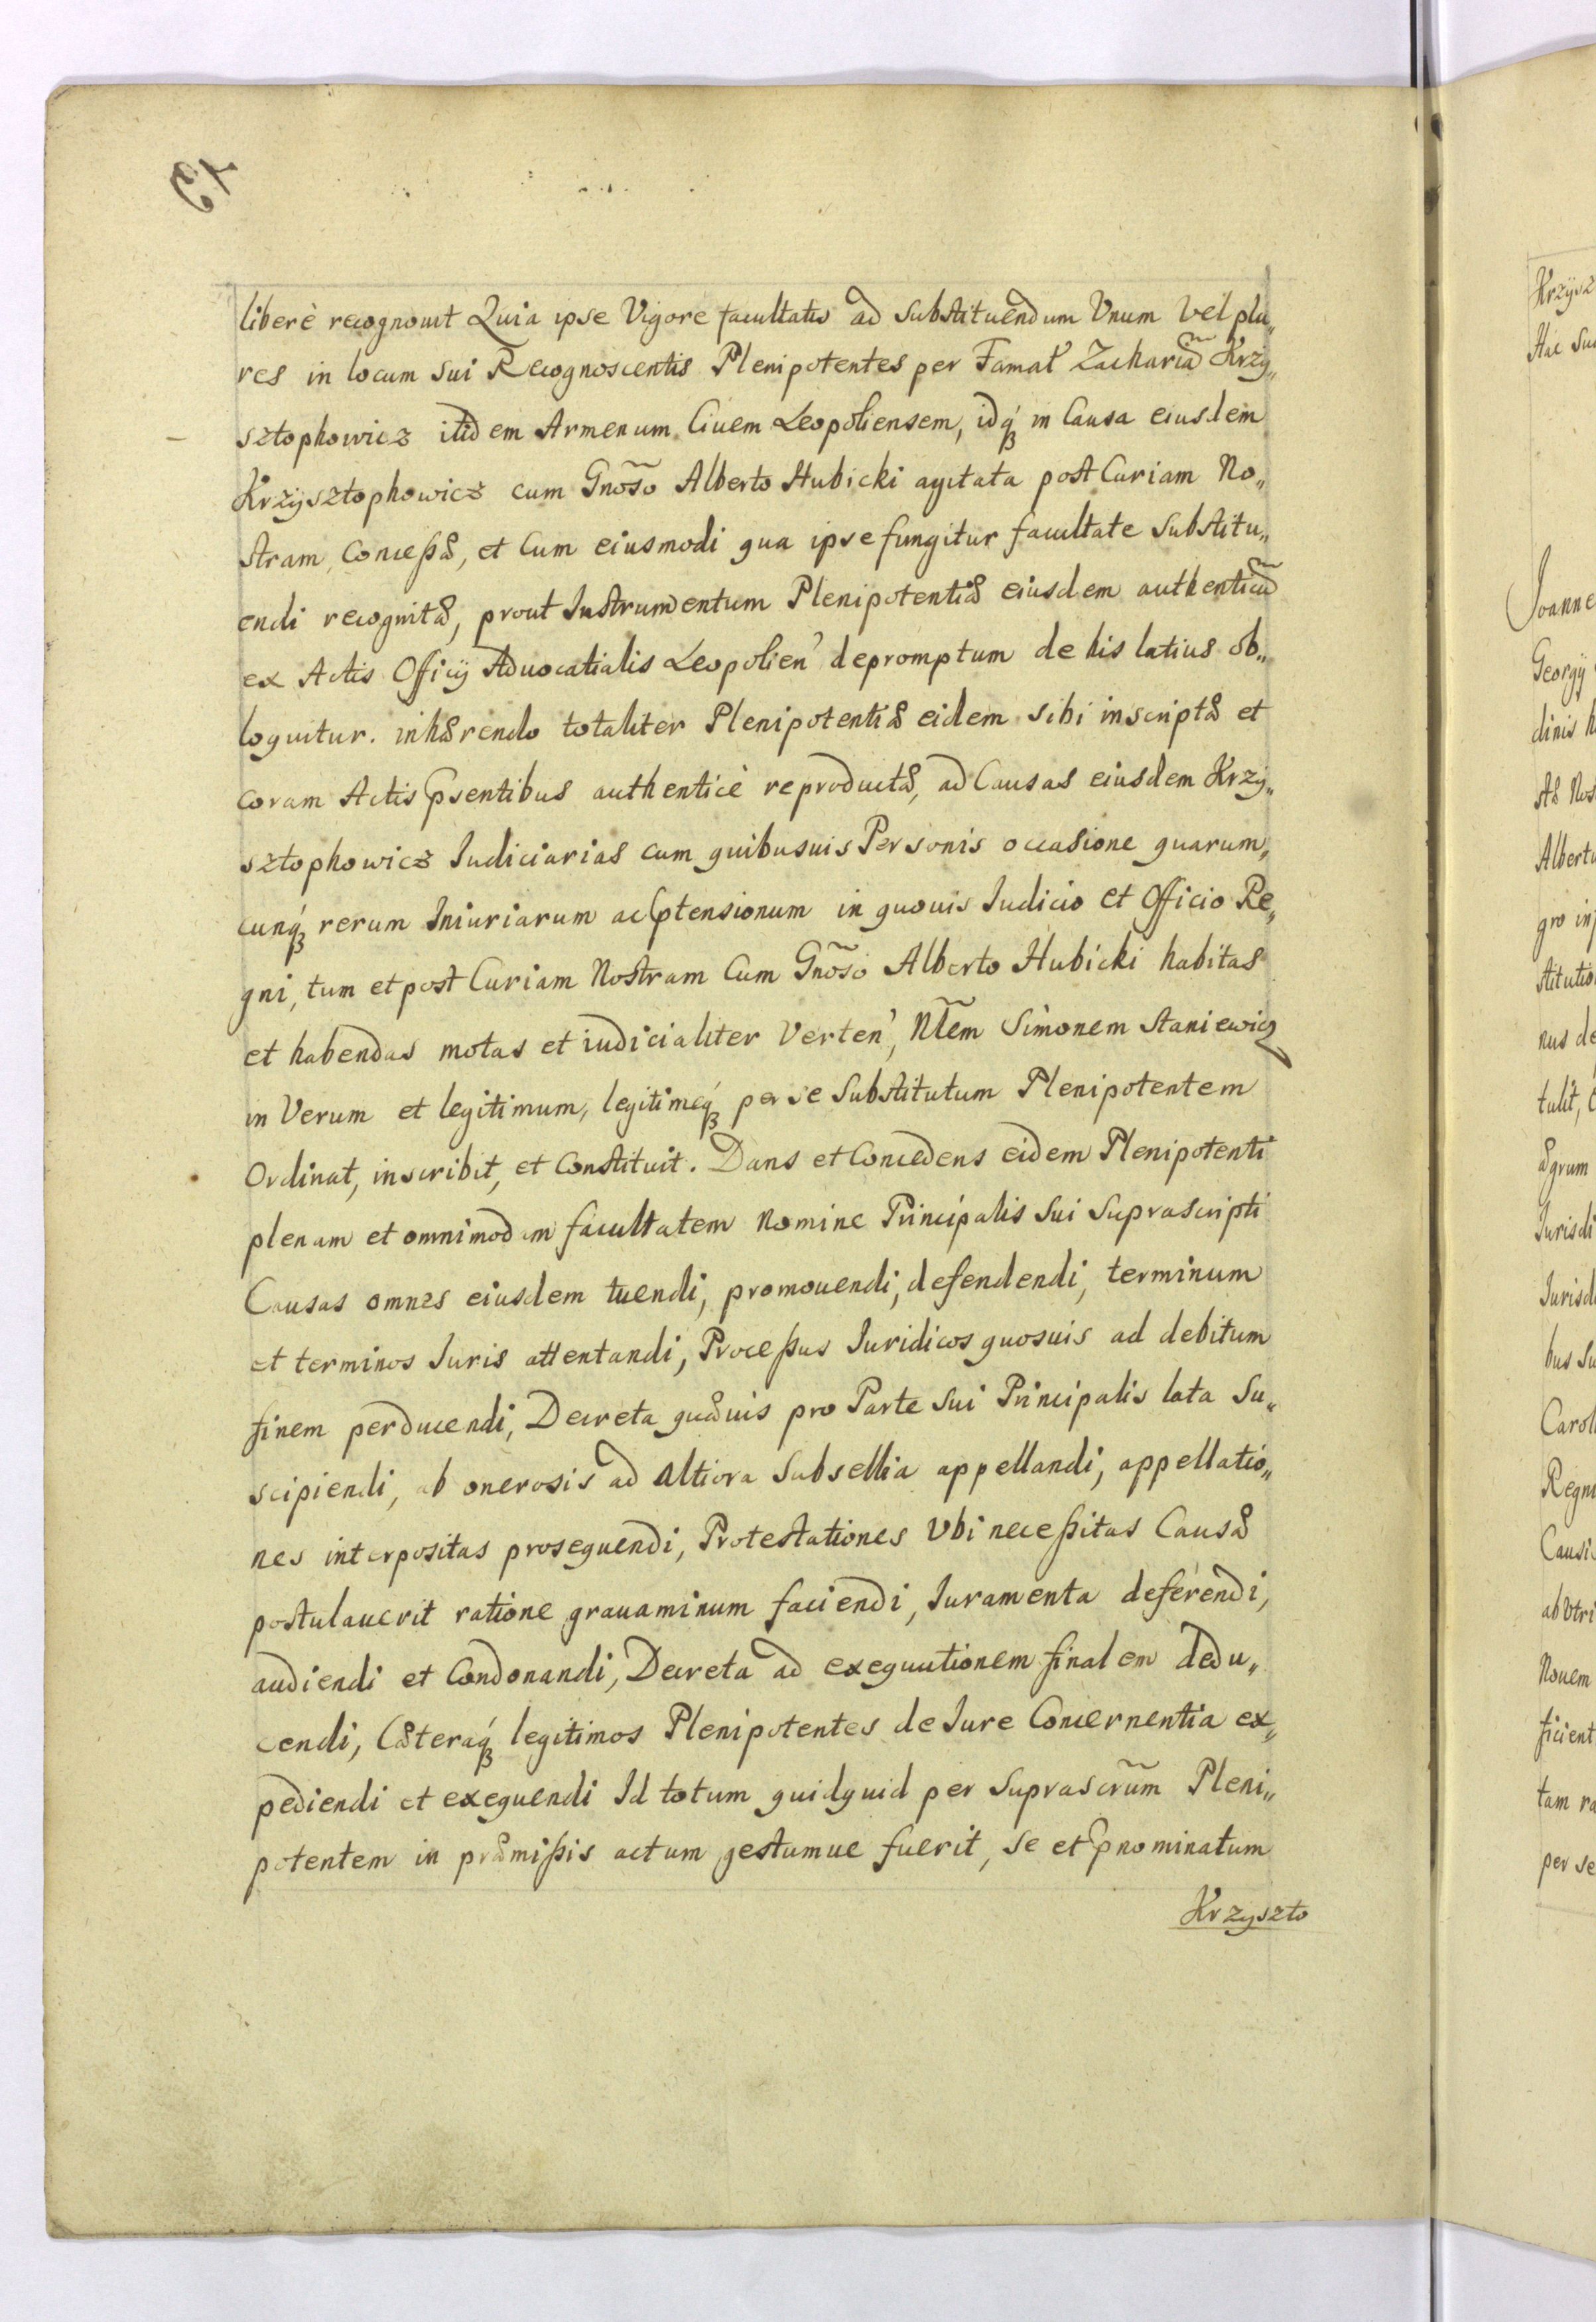 liberè recognouit Quia ipse Vigore facultatis ad substituendum Vnum vel plu„
res in locum sui Recognoscentis Plenipotentes per Famat̃ Zachariã Krzy„
sztophowicz itidem Armenum Ciuem Leopoliensem, idq́ꝫ in Causa eiusdem
Krzÿsztophowicz cum Gnõso Alberto Hubicki agitata post Curiam No„
stram, Conceßæ, et Cum eiusmodi qua ipse fungitur facultate substitu„
endi recognitæ, prout Instrumentum Plenipotentiæ eiusdem authenticũ
ex Actis Officÿ Aduocatialis Leopolien' depromptum de his latius ob„
loquitur. inhærendo totaliter Plenipotentiæ eidem sibi inscriptæ et
coram Actis Pꝛsentibus authenticè reproductæ, ad Causas eiusdem Krzÿ„
sztophowicz Iudiciarias cum quibusuis Personis occasione quarum„
cunq́ꝫ rerum Iniuriarum ac Pꝛtensionum in quouis Iudicio et Officio Re„
gni, tum et post Curiam Nostram Cum Gnõso Alberto Hubicki habitas
et habendas motas et iudicialiter Verten', Nl̃em Simonem Staniewicz
in Verum et legitimum, legitimeq́ꝫ per se Substitutum Plenipotentem
Ordinat, inscribit, et Constituit. Dans et Concedens eidem Plenipotenti
plenam et omnimodam facultatem Nomine Principalis sui suprascripti
Causas omnes eiusdem tuendi, promouendi, defendendi, terminum
et terminos Iuris attentandi, Proceßus Iuridicos quosuis ad debitum
finem perducendi, Decreta quæuis pro Parte sui Principalis lata su„
scipiendi, ab onerosis ad altiora Subsellia appellandi, appellatio„
nes interpositas prosequendi, Protestationes Vbi neceßitas Causæ
postulauerit ratione grauaminum faciendi, Iuramenta deferendi,
audiendi et Condonandi, Decreta ad exequutionem finalem dedu„
cendi, Cæteraq́ꝫ legitimos Plenipotentes de Iure Concernentia ex„
pediendi et exequendi Id totum quidquid per suprascrũm Pleni„
potentem in præmißis actum gestumue fuerit, se et Pꝛnominatum
Krzyszto